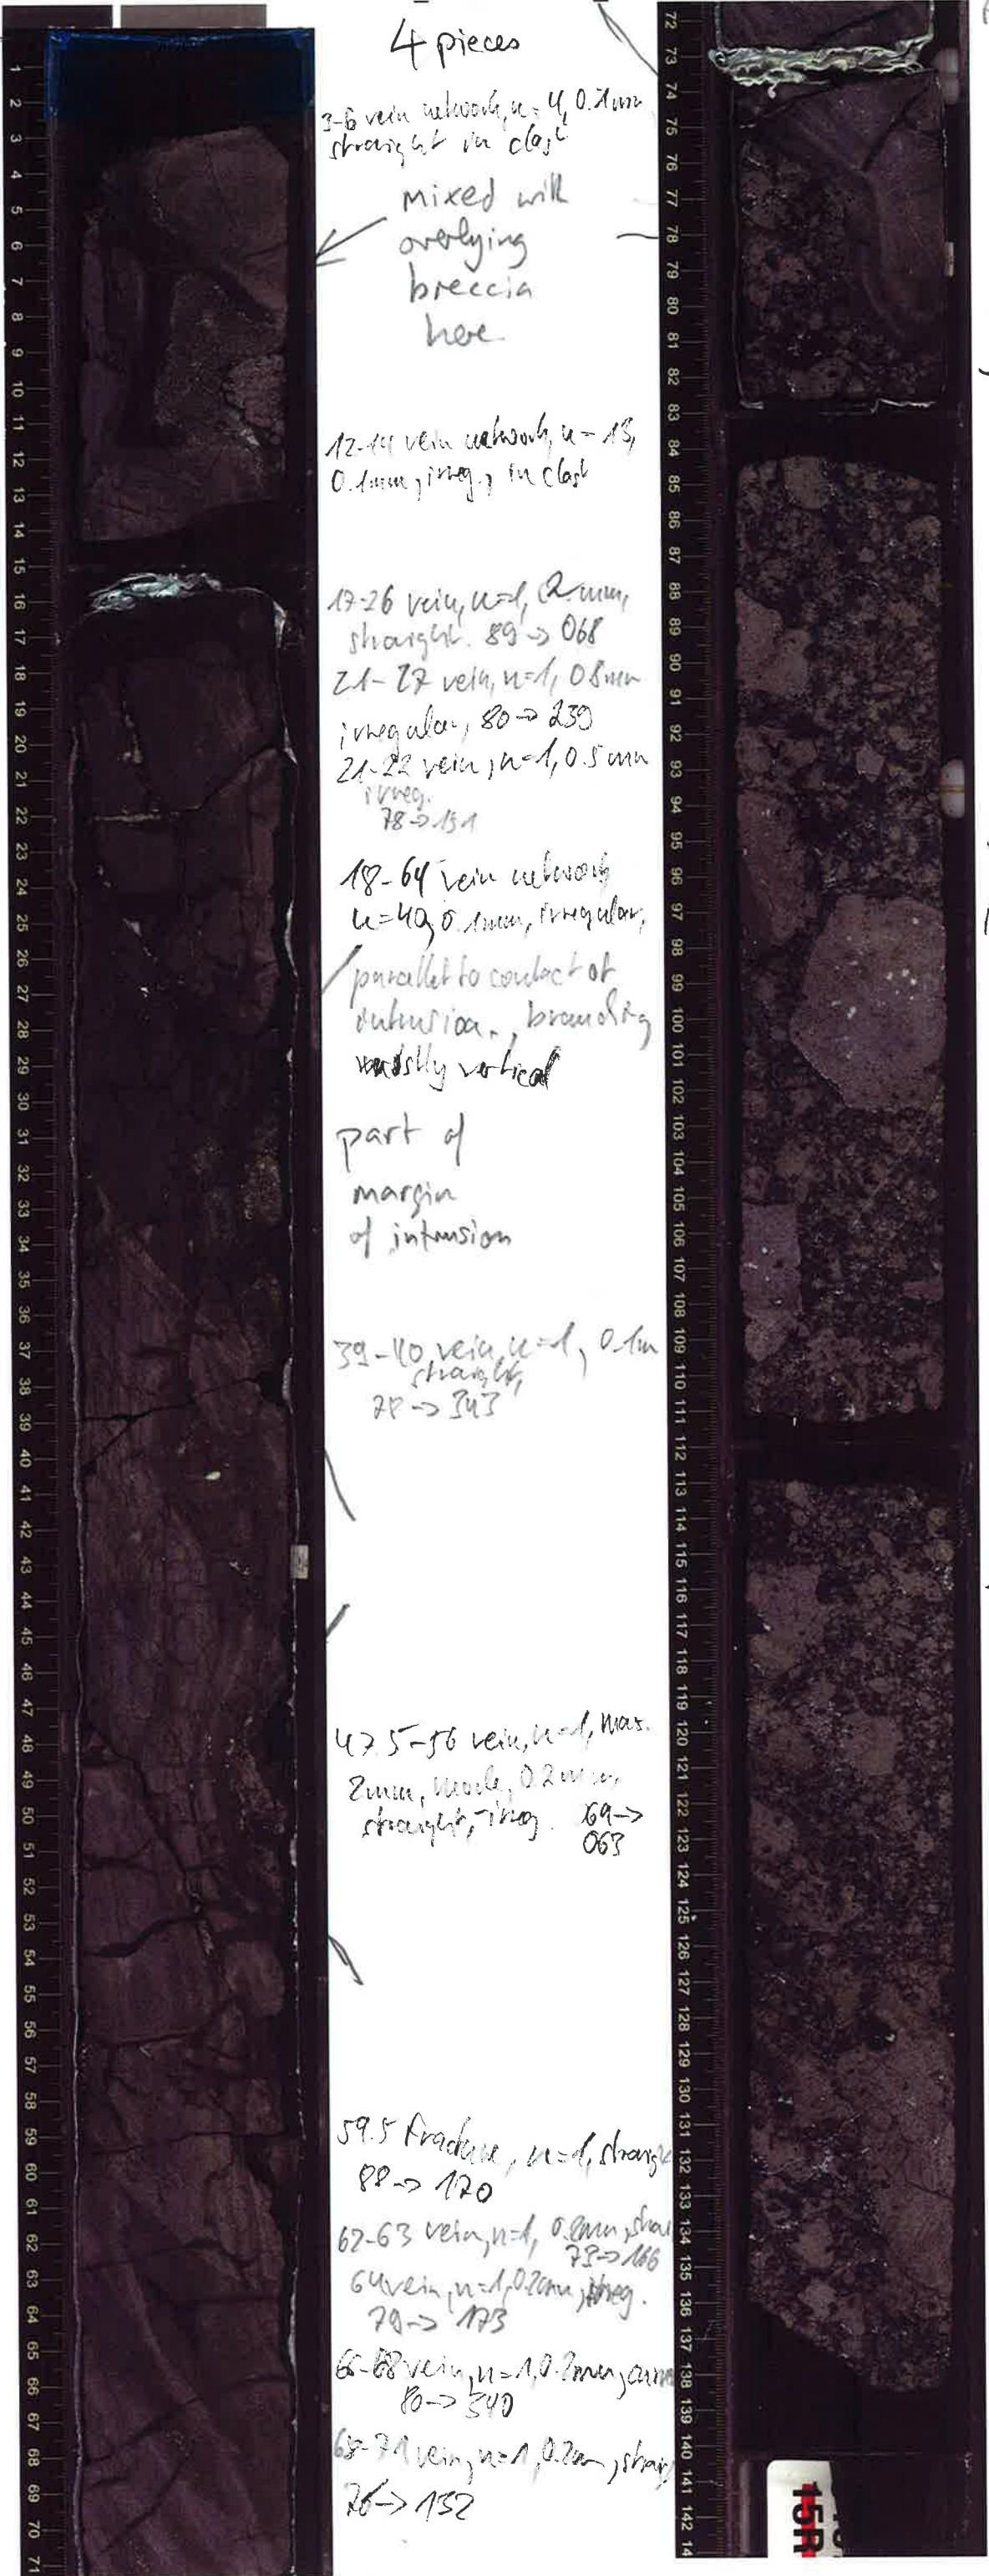 4 pieces
3-6 vein network, n=4, 0.1mm
straight in clast
Mixed with
overlying
breccia
here
12-14 vein network, n=13,
0.1mm, irreg., in clast
17-26 vein, n=1, 2mm,
straight. 89->068
21-27 vein, n=1, 0.8mm
irregular, 80->239
21-22 vein, n=1, 0.5mm
irreg.
78->191
18-64 vein network
n=40, 0.1mm, irregular,
parallel to contact of
intrusion, branching
vertical
part of
margin
of intrusion
39-40 vein, n=1, 0.1m
straight,
78->343
47.5-56 vein, n=1, max.
2mm, 0.2mm,
straight, -irreg. 69->
063
59.5 Fracture, n=1, straig
88->170
62-63 vein, n=1, 0.2mm, strai
73->166
64 vein, n=1, 0.2mm, irreg.
79->173
66-68 vein, n=1, 0.2mm,
80->340
68-71 vein, n=1, 0.2mm, straig
76->132
1
2
3
4
5
6
7
8
9
10
11
12
13
14
15
16
17
18
19
20
21
22
23
24
25
26
27
28
29
30
31
32
33
34
35
36
37
38
39
40
41
42
43
44
45
46
47
48
49
50
51
52
53
54
55
56
57
58
59
60
61
62
63
64
65
66
67
68
69
70
71
72
73
74
75
76
77
78
79
80
81
82
83
84
85
86
87
88
89
90
91
92
93
94
95
96
97
98
99
100
101
102
103
104
105
106
107
108
109
110
111
112
113
114
115
116
117
118
119
120
121
122
123
124
125
126
127
128
129
130
131
132
133
134
135
136
137
138
139
140
141
142
14
15R